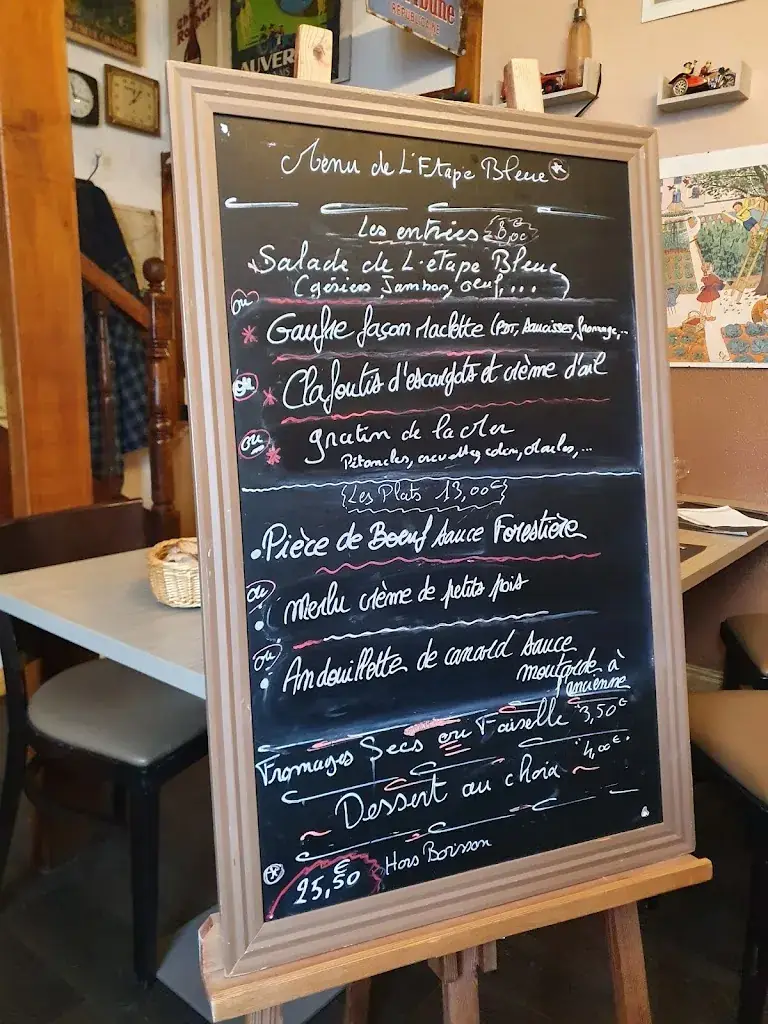 AUVER
RÉPUBLICAINE
Menu de L'Etape Bleue
Les entrées 8,00€
Salade de L'etape Bleue
(gésiers, Jambon, oeuf, ...)
ou
Gaufre façon raclette (PDT, saucisses, fromage,...
ou
Clafoutis d'escargots et crème d'ail
ou
gratin de la Mer
Pétoncles, crevettes, colin, moules,...
Les Plats 13,00€
Pièce de Boeuf sauce Forestière
ou
Merlu crème de petits pois
ou
Andouillette de canard sauce
moutarde à
ancienne
Fromages Secs ou Faiselle 3,50€
Dessert au choix 4,00€
25,50€ Hors Boisson